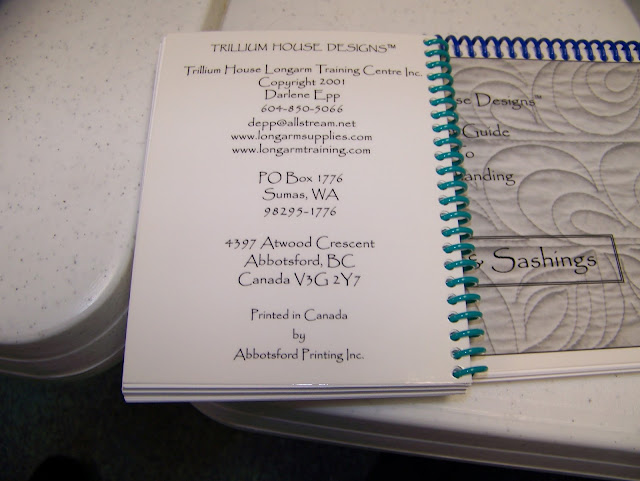 TRILLIUM HOUSE DESIGNS™
Trillium House Longarm Training Centre Inc.
Copyright 2001
Darlene Epp
604-850-5066
depp@allstream.net
www.longarmsupplies.com
www.longarmtraining.com
PO Box 1776
Sumas, WA
98295-1776
4397 Atwood Crescent
Abbotsford, BC
Canada V3G 2Y7
Printed in Canada
by
Abbotsford Printing Inc.
Designs™
Guide
& Sashings